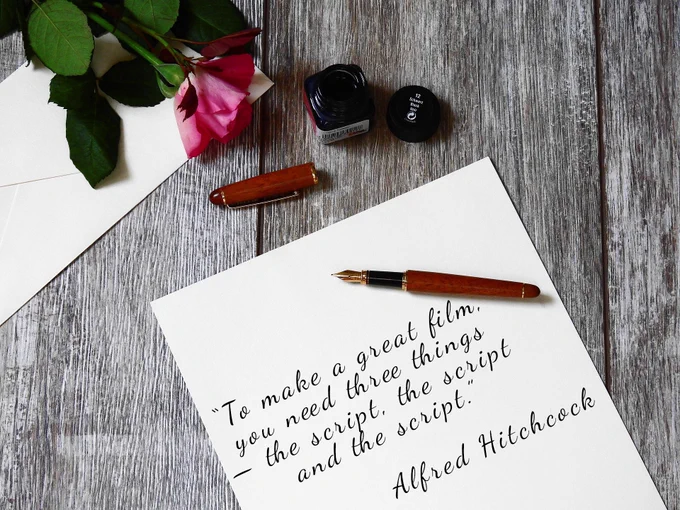 12
“To make a great film,
you need three things
– the script, the script
and the script.”
Alfred Hitchcock